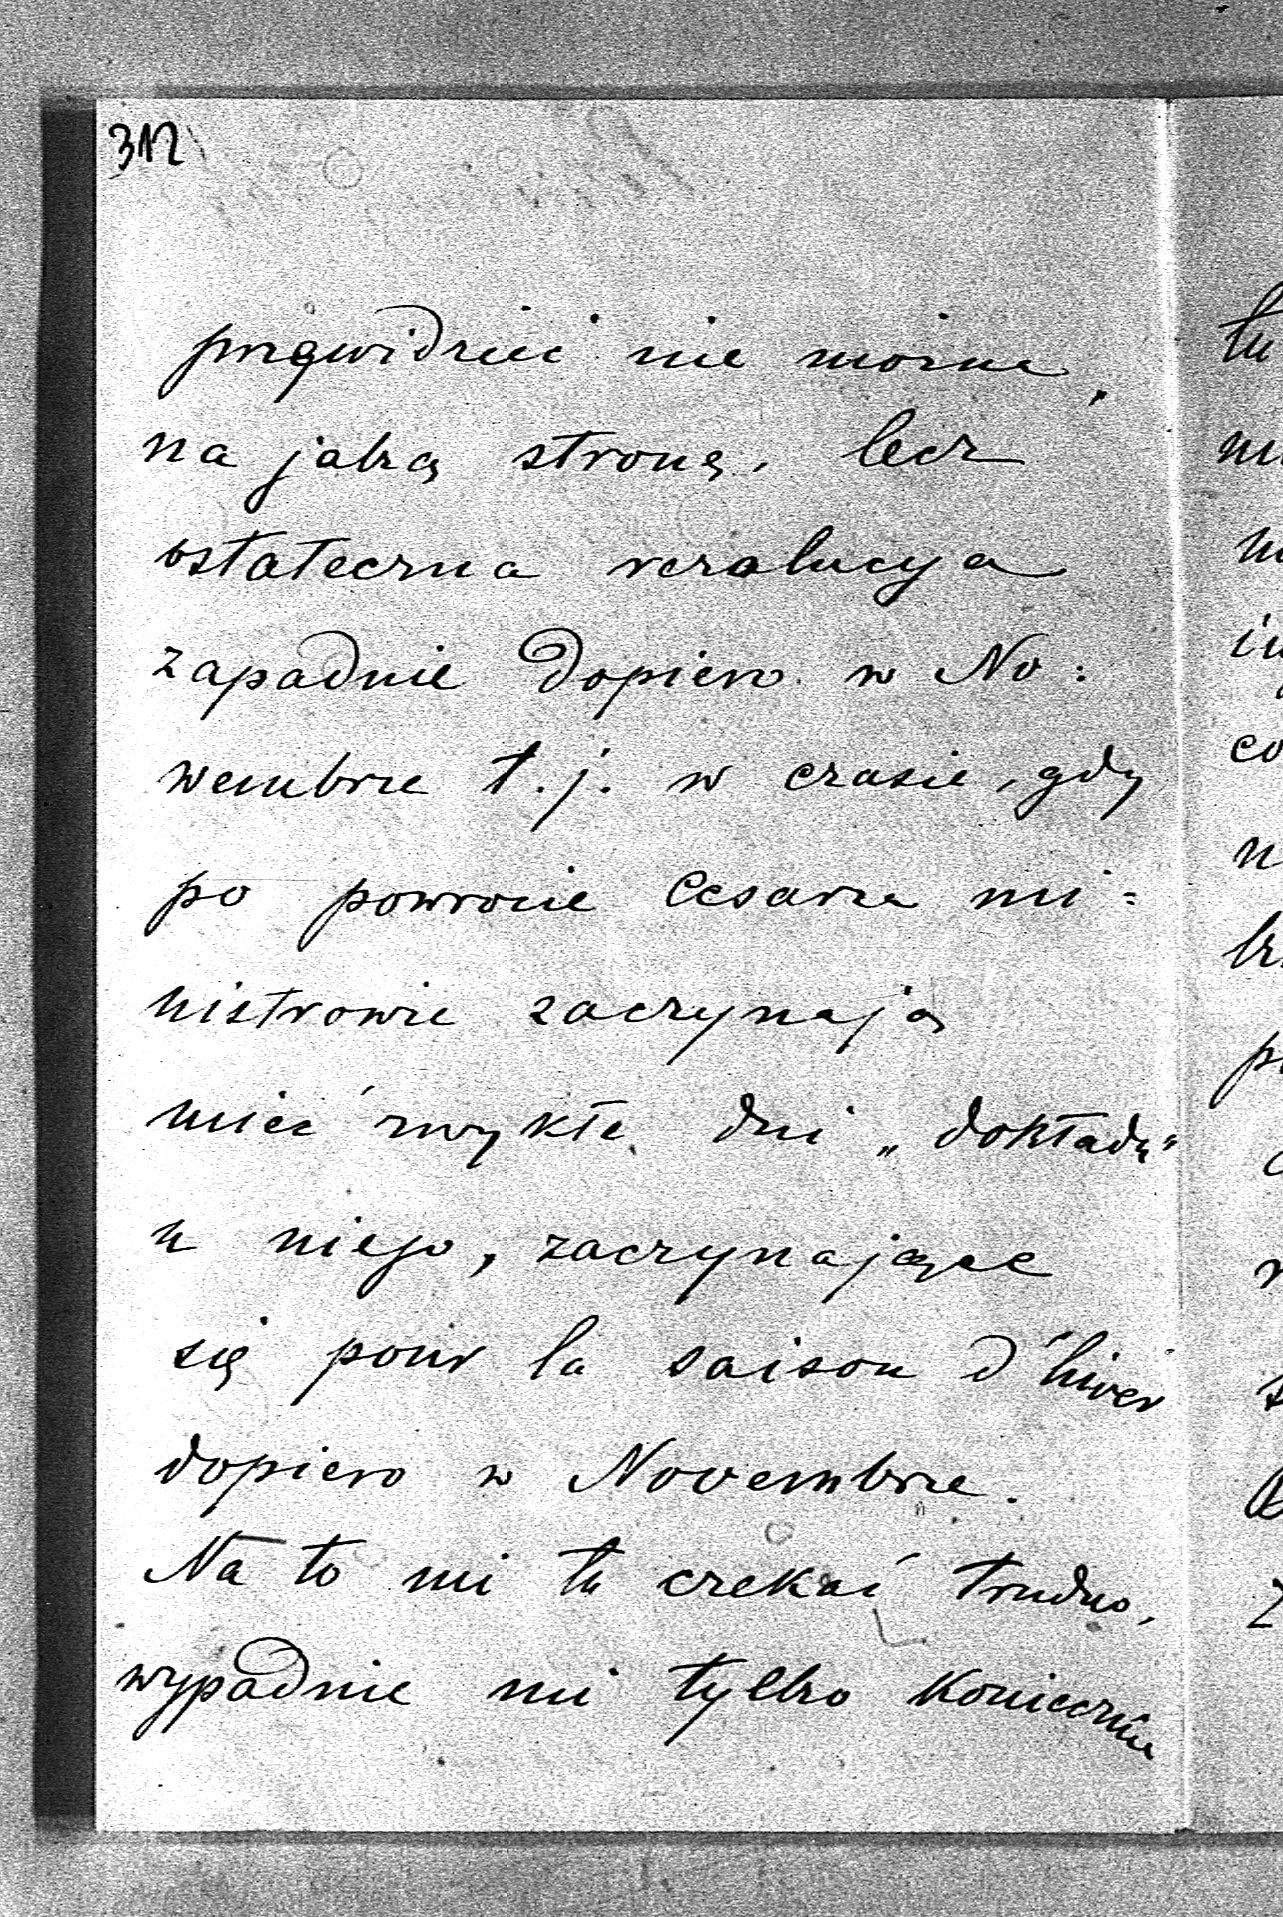 312
przewidzieć nie można,
na jaką stronę, lecz
ostateczna rezolucya
zapadnie dopiero w No:
wembrze t.j. w czasie, gdy
po powrocie Cesarza mi=
nistrowie zaczynają
mieć zwykłe dni „dokładu"
u niego, zaczynające
się pour la saison d'hiver
dopiero w Novembrze.
Na to mi tu czekać trudno,
wypadnie mi tylko koniecznie